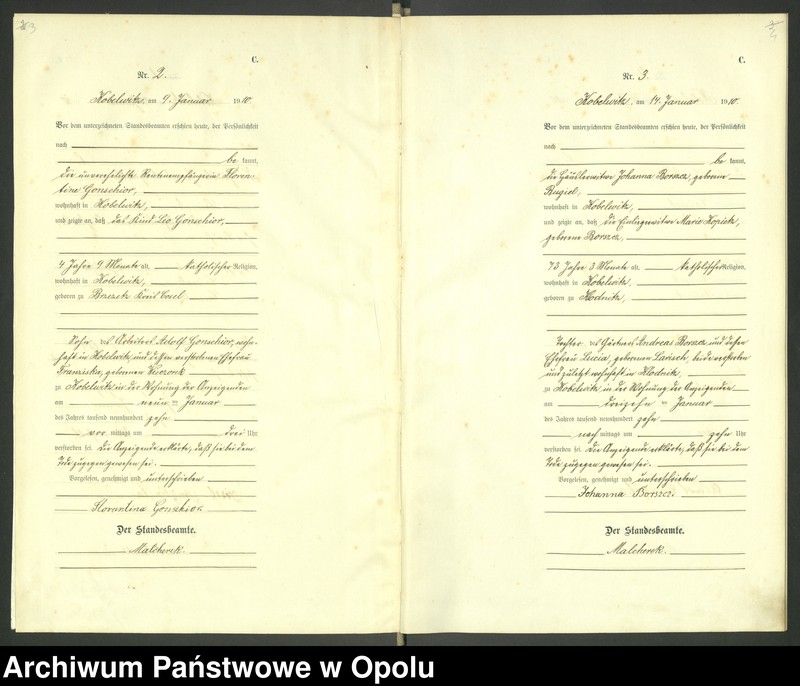 C.
Nr. 2.
Kobelwitz, am 9. Januar 1910.
Vor dem unterzeichneten Standesbeamten erschien heute, der Persönlichkeit
nach
be kannt,
die unverehelichte Rentenempfängerin Floren-
tine Gonschior,
wohnhaft in Kobelwitz,
und zeigte an, daß das Kind Leo Gonschior,
4 Jahre 9 Monate alt, katholischer Religion,
wohnhaft in Kobelwitz,
geboren zu Kreis Cosel,
Sohn des Arbeiters Adolf Gonschior, wohn-
haft in Kobelwitz und dessen verstorbenen Ehefrau
Franziska, geborenen
zu Kobelwitz in der Wohnung der Anzeigenden
am neun ten Januar
des Jahres tausend neunhundert zehn
vor mittags um drei Uhr
verstorben sei. Die Anzeigende erklärte, daß sie bei dem
Tode zugegen gewesen sei.
Vorgelesen, genehmigt und unterschrieben
Florentina Gonschior.
Der Standesbeamte.
Malcherek.
C.
Nr. 3.
Kobelwitz, am 14. Januar 1910.
Vor dem unterzeichneten Standesbeamten erschien heute, der Persönlichkeit
nach
be kannt,
die Häuslerwitwe Johanna Borszcz, geborene
wohnhaft in Kobelwitz,
und zeigte an, daß die Einliegerwitwe Marie Kopietz,
geborene Borszcz,
73 Jahre 3 Monate alt, katholischer Religion,
wohnhaft in Kobelwitz,
geboren zu Klodnitz,
Tochter des Gärtners Andreas Borszcz und dessen
Ehefrau Lucia, geborenen Larisch, beide verstorben
und zuletzt wohnhaft in Klodnitz,
zu Kobelwitz in der Wohnung der Anzeigenden
am dreizehn ten Januar
des Jahres tausend neunhundert zehn
nach mittags um zehn Uhr
verstorben sei. Die Anzeigende erklärte, daß sie bei dem
Tode zugegen gewesen sei.
Vorgelesen, genehmigt und unterschrieben
Johanna Borszcz.
Der Standesbeamte.
Malcherek.
Archiwum Państwowe w Opolu